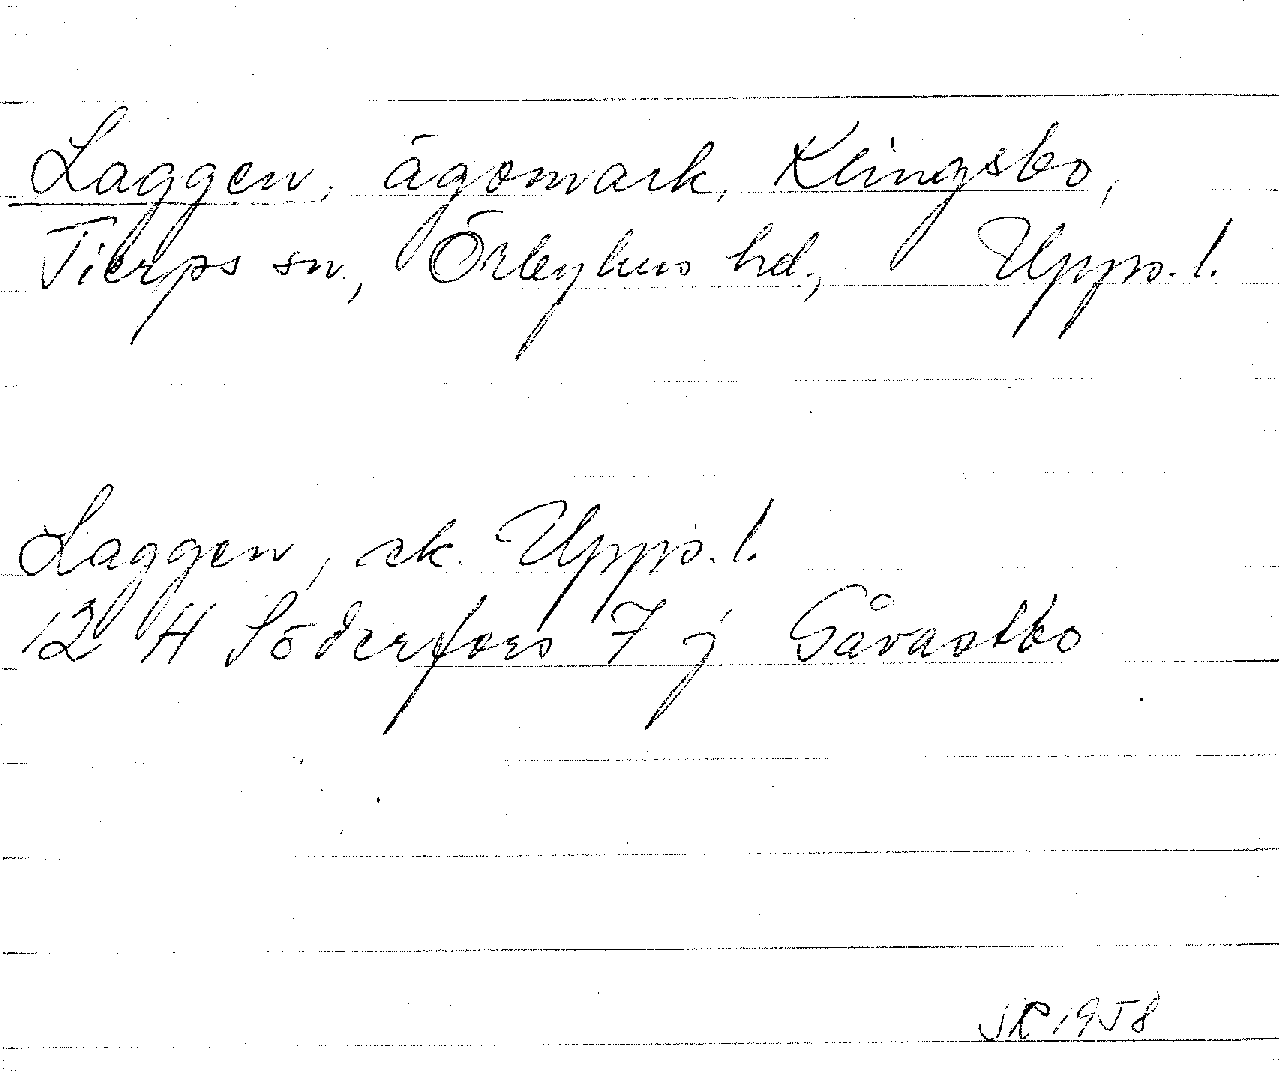 Laggen, ägomark, Klingsbo,
Tierps sn., Örbyhus hd., Upps. l.
Laggen, ek. Upps. l.
12 H Söderfors 7 j Gåvastbo
1958